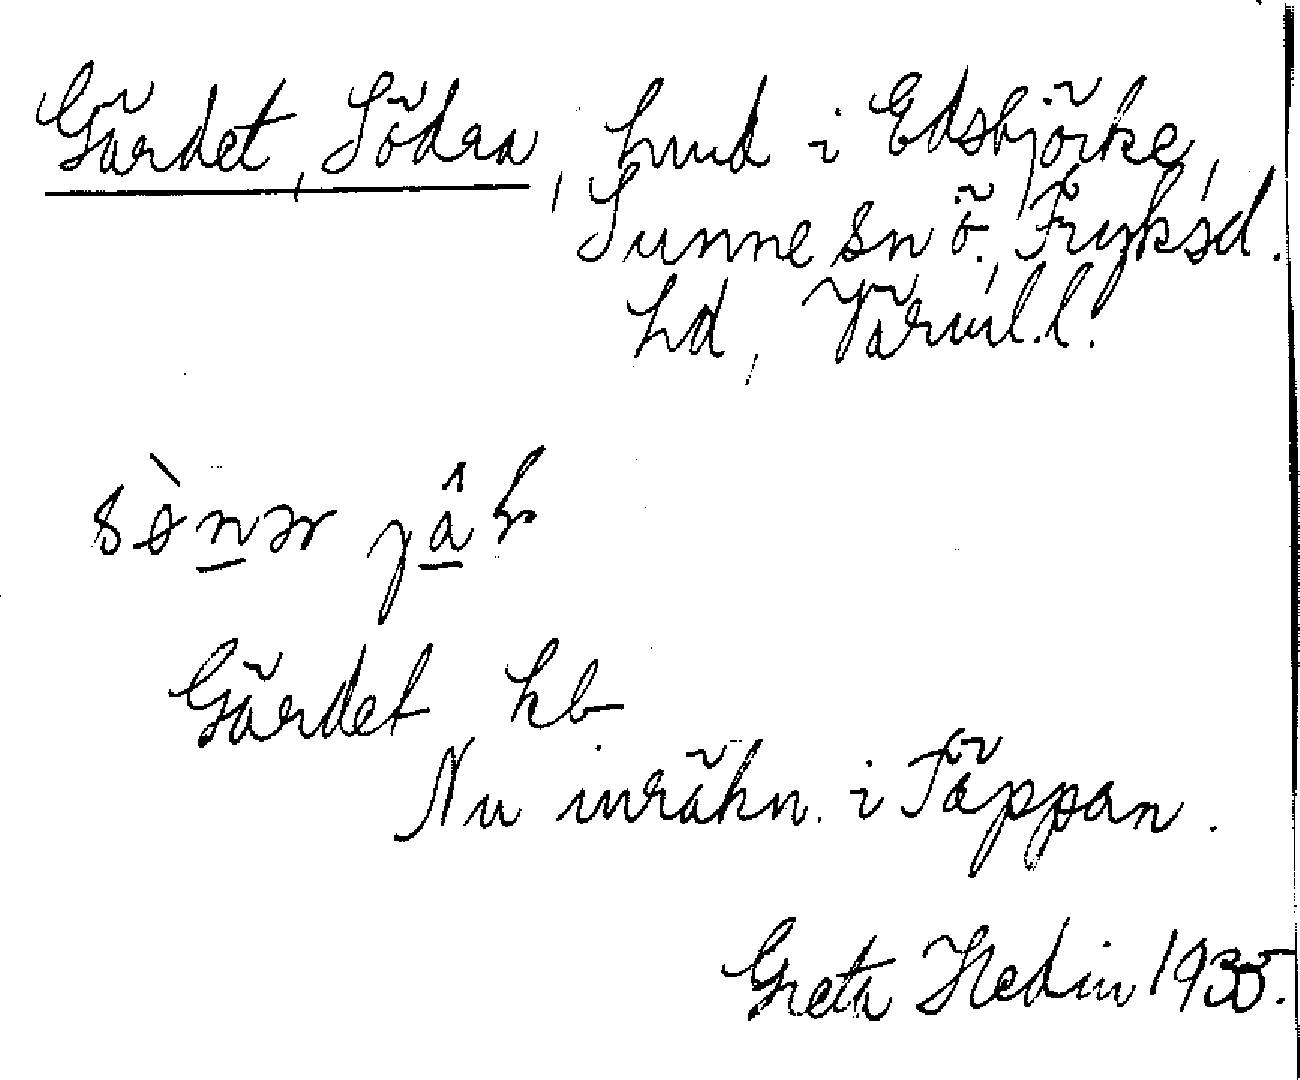 Gärdet, Södra, hmd i Edsbjörke,
Sunne sn ö., Fryksd.
hd, Värml.l.
Gärdet hb
Nu inräkn. i Täppan.
Greta Hedin 1935.